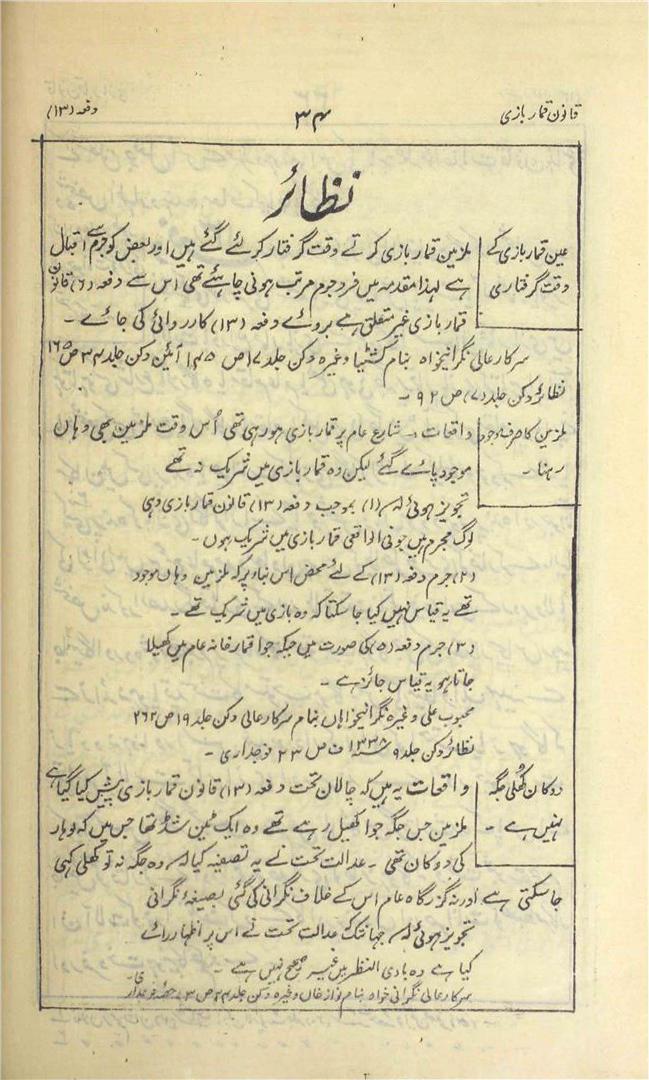 قانون قمار بازی ۳۴ دفعہ (۱۳)
نظائر
عین قمار بازی کے
وقت گرفتاری
ملزمین قمار بازی کرتے وقت گرفتار کرلئے گئے ہیں اور بعض کو جرم سے اقبال
ہے لہذا مقدمہ میں فرد جرم مرتب ہونی چاہئے تھی اس سے دفعہ (۶) قانون
قمار بازی غیر متعلق ہے بروئے دفعہ (۱۳) کارروائی کی جائے ۔
سرکار عالی نگرانیخواہ بنام کشٹیا وغیرہ دکن جلد ۱۷ ص ۱۴۵ آئین دکن جلد ۳۴ ص ۱۶۵
نظائر دکن جلد (۷) ص ۹۲ ۔
ملزمین کا صرف موجود
رہنا ۔
واقعات :۔ شارع عام پر قمار بازی ہو رہی تھی اُس وقت ملزمین بھی وہاں
موجود پائے گئے لیکن وہ قمار بازی میں شریک نہ تھے
تجویز ہوئی کہ (۱) بموجب دفعہ (۱۳) قانون قمار بازی وہی
لوگ مجرم ہیں جو فی الواقعی قمار بازی میں شریک ہوں ۔
(۲) جرم دفعہ (۱۳) کے لئے محض اس بناء پر کہ ملزمین وہاں موجود
تھے یہ قیاس نہیں کیا جاسکتا کہ وہ بازی میں شریک تھے ۔
(۳) جرم دفعہ (۵) کی صورت میں جبکہ جوا قمار خانہ عام میں کھیلا
جاتا ہو یہ قیاس جائز ہے ۔
محبوب علی وغیرہ نگرانیخواہاں بنام سرکار عالی دکن جلد ۱۹ ص ۲۶۲
نظائر دکن جلد ۹ ۱۳۳۸ ف ص ۲۳ فوجداری ۔
دوکان کُھلی جگہ
نہیں ہے ۔
واقعات یہ ہیں کہ چالان تحت دفعہ (۱۳) قانون قمار بازی پیش کیا گیا ہے
ملزمین جس جگہ جوا کھیل رہے تھے وہ ایک ٹین شڈ تھا جس میں کہ لوہار
کی دوکان تھی ۔ عدالت تحت نے یہ تصفیہ کیا کہ وہ جگہ نہ تو کھلی کہی
جاسکتی ہے اور نہ گزرگاہ عام اس کے خلاف نگرانی کی گئی بصیغۂ نگرانی
تجویز ہوئی کہ جہانتک عدالت تحت نے اس پر اظہار رائے
کیا ہے وہ بادی النظر میں غیر صحیح نہیں ہے ۔
سرکار عالی نگرانی خواہ بنام نواز خاں وغیرہ دکن جلد ۲۴ ص ۷۳ حصہ فوجداری ۔